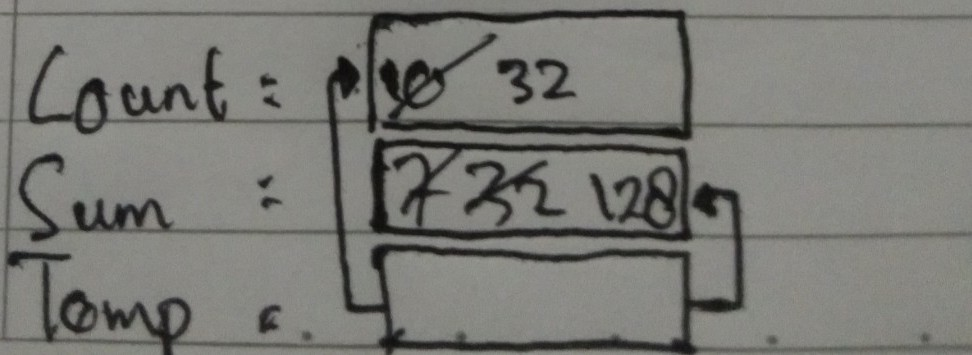 Count : 10 32
Sum : 7 32 128
Temp =